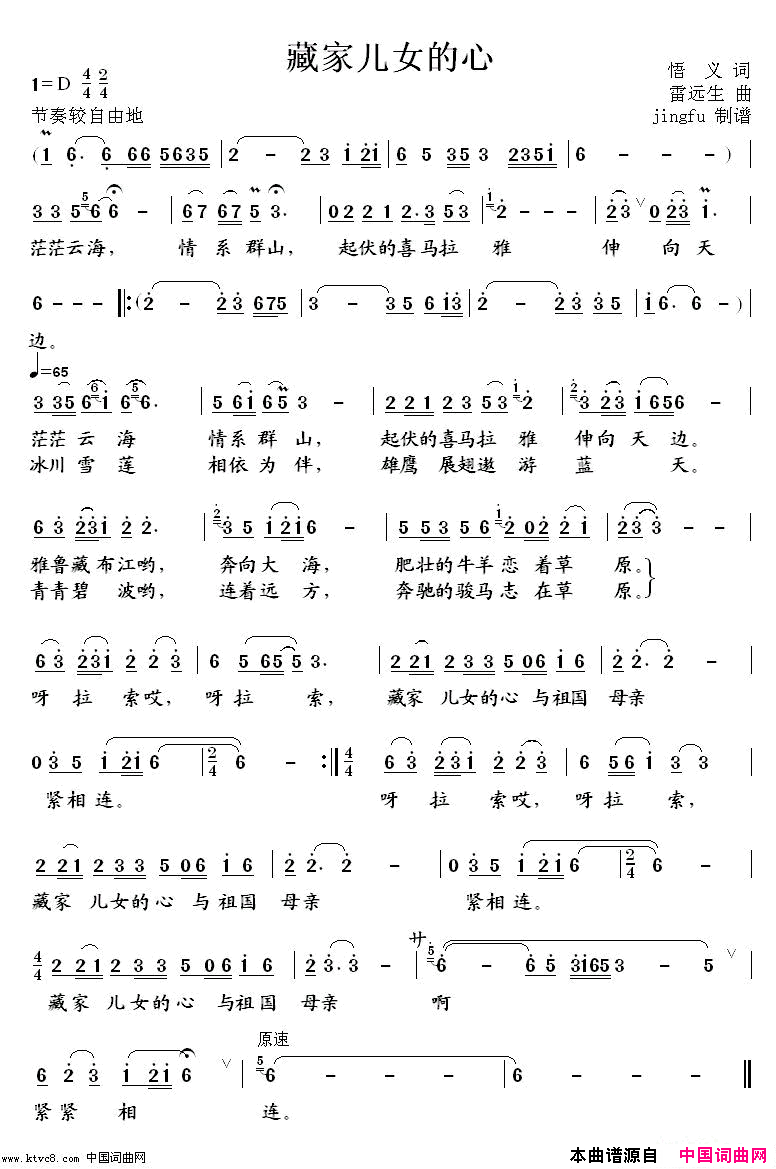 藏家儿女的心
1=D 4/4 2/4
悟 义 词
雷远生 曲
jingfu 制谱
节奏较自由地
(1 6. 6 66 5635 | 2 - 23 i 2i | 6 5 35 3 2351 | 6 - - - ) |
3 3 5 6 6 - | 67 67 5 3. | 02 21 2.3 53 | 2 - - - | 23 ∨ 0 23 i. |
茫茫云海, 情系群山, 起伏的喜马拉 雅 伸 向天
6 - - - |: (2 - 23 675 | 3 - 35 6 i3 | 2 - 23 35 | i6. 6 - ) |
边。
♩=65
3 35 6i 66. | 5 6i 65 3 - | 22 21 23 53 2 | 3 23 i656 - |
茫茫 云 海 情系 群 山, 起伏的喜马拉 雅 伸向 天 边。
冰川 雪 莲 相依 为 伴, 雄鹰 展翅遨 游 蓝 天。
6 3 23i 2 2. | 3 5 i2i6 - | 55 535 56 2 02 2i | 23 3 - - |
雅鲁藏布江哟, 奔向大 海, 肥壮的牛羊恋 着草 原。
青青碧 波哟, 连着远 方, 奔驰的骏马志 在草 原。
63 23i 2 23 | 6 5 65 5 3. | 2 2i 2 33 5 06 i6 | 2 2. 2 - |
呀 拉 索哎, 呀拉 索, 藏家 儿女的心 与祖国 母亲
0 3 5 i 2i 6 | 2/4 6 - :| 4/4 63 23i 2 23 | 6 56i 3 3 |
紧相连。 呀 拉 索哎, 呀拉 索,
2 2i 2 33 5 06 i6 | 2 2. 2 - | 0 3 5 i 2i 6 | 2/4 6 - |
藏家 儿女的心 与祖国 母亲 紧相连。
4/4 2 2i 2 33 5 06 i6 | 2 3. 3 - | 廾 6 - 65 3i653 - 5 ∨ |
藏家 儿女的心 与祖国 母亲 啊
原速
6 2 3 i 2i 6 ∨ | 6 - - - | 6 - - - ||
紧紧 相 连。
www.ktvc8.com 中国词曲网
本曲谱源自 中国词曲网